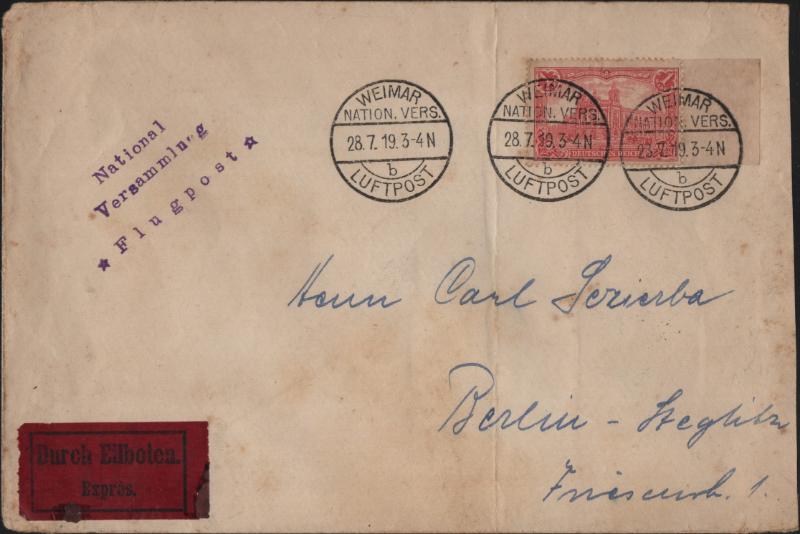 National
Versammlung
★ Flugpost ★
WEIMAR
NATION. VERS.
28.7.19.3-4N
b
LUFTPOST
WEIMAR
NATION. VERS.
28.7.19.3-4N
b
LUFTPOST
WEIMAR
NATION. VERS.
28.7.19.3-4N
b
LUFTPOST
DEUTSCHES REICH
Herrn Carl
Berlin - Steglitz
1.
Durch Eilboten.
Exprès.